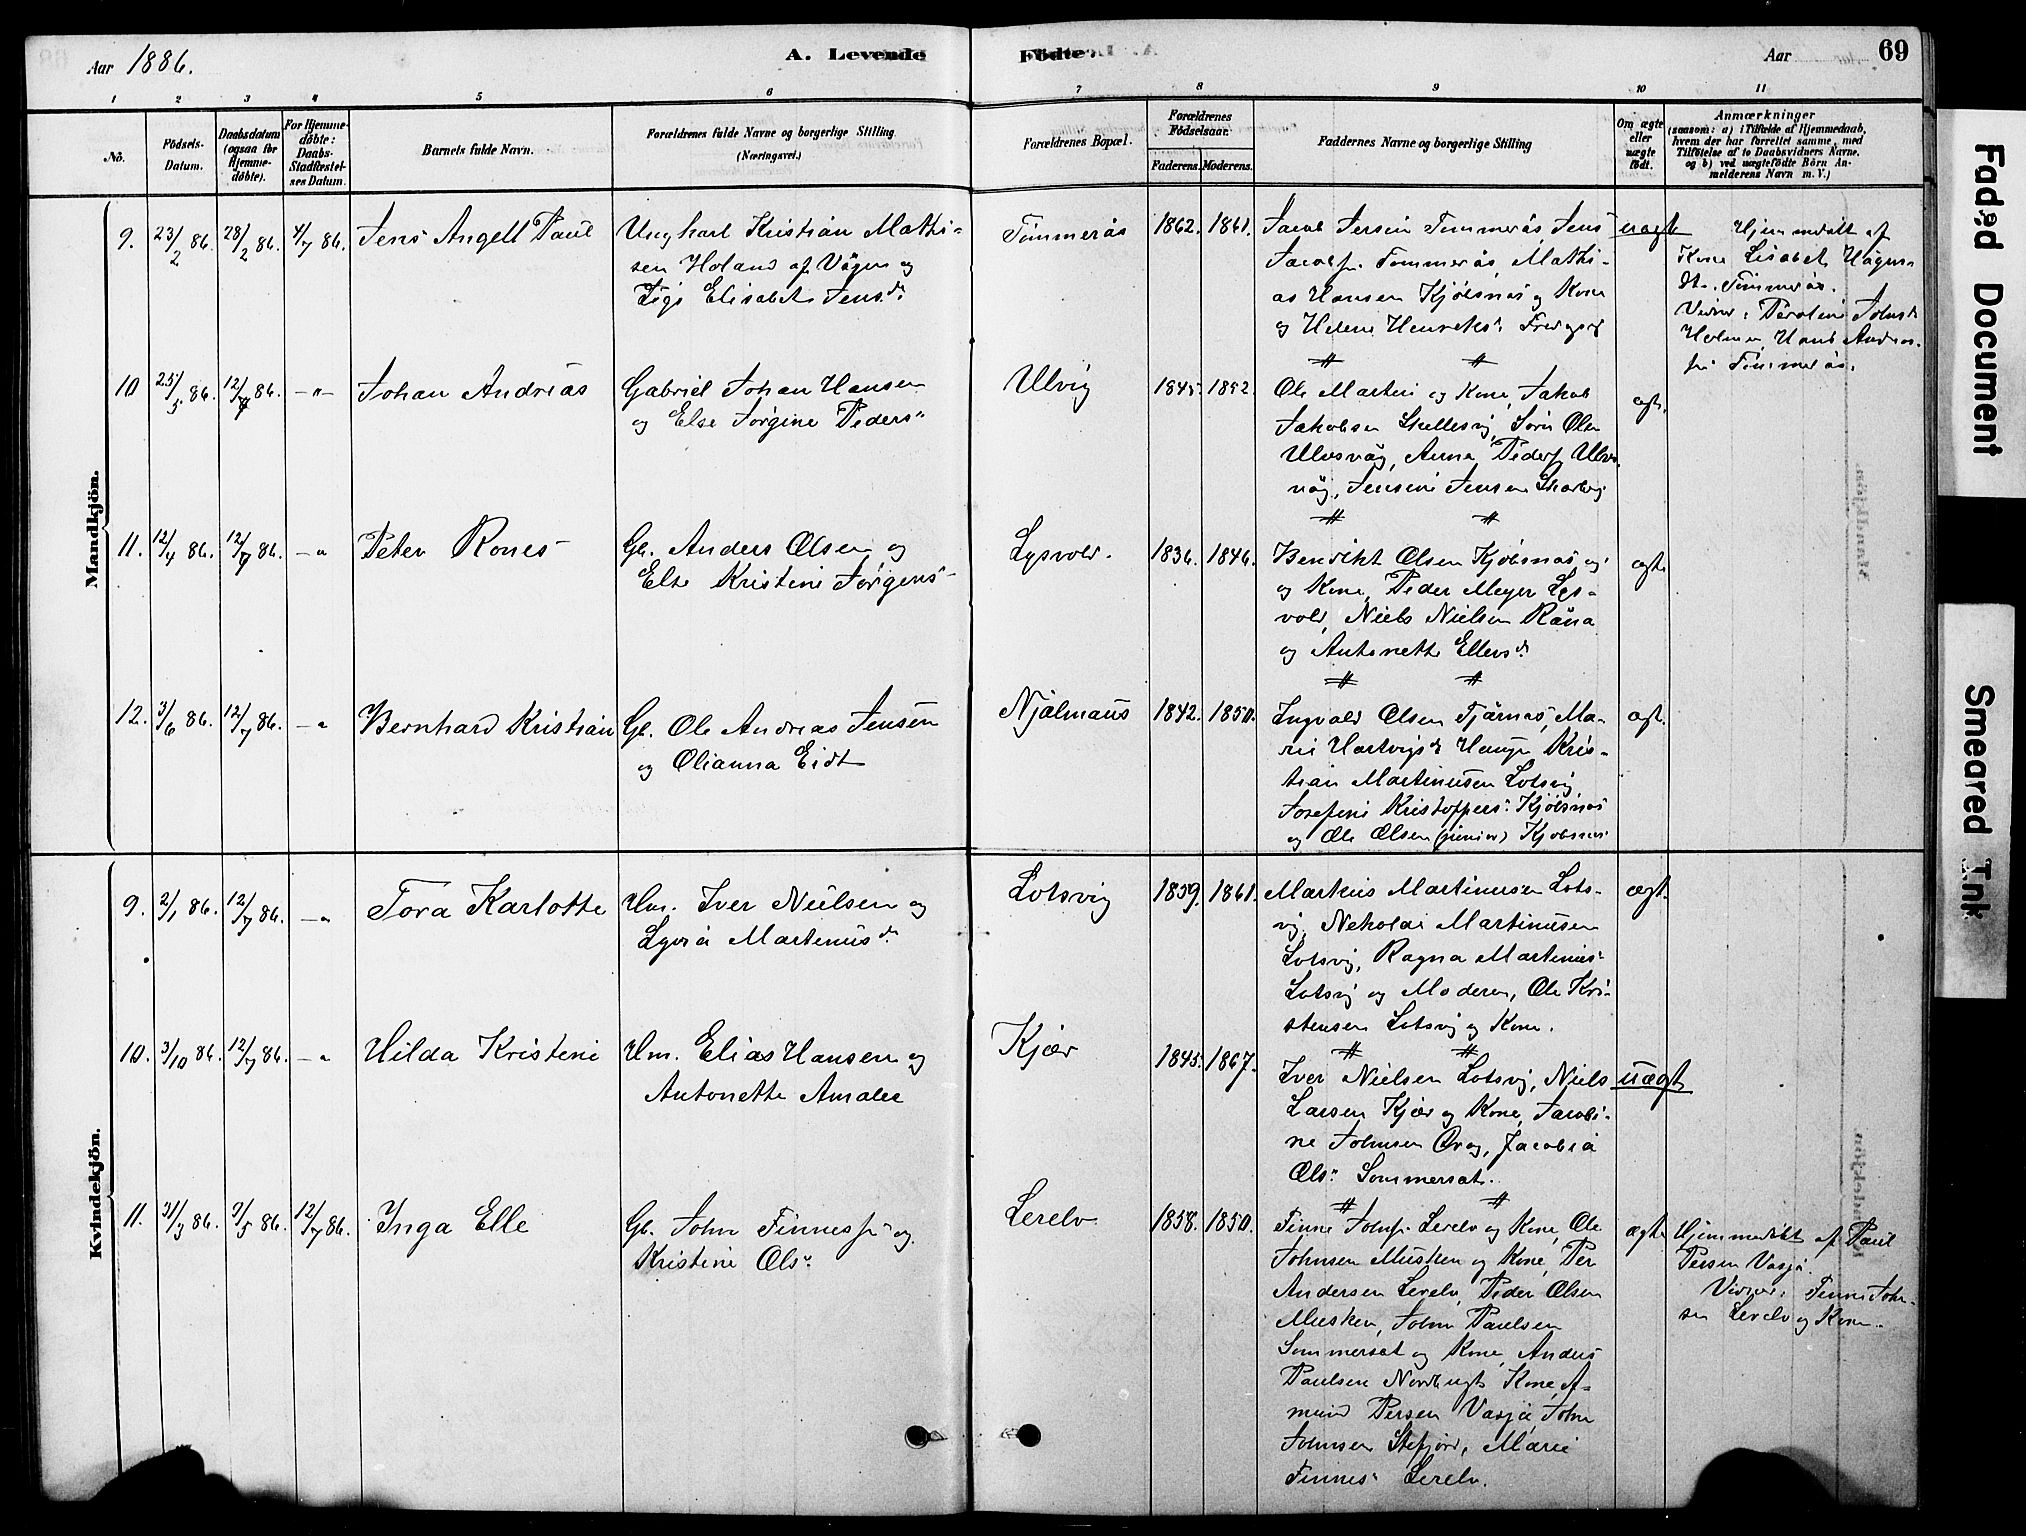 Aar 1886.
A. Levende
Födte.
Aar
69
1 2 3 4 5 6 7 8 9 10 11
No.
Födsels-
Datum.
Daabsdatum
(ogsaa for
Hjemme-
döbte).
For Hjemme-
döbte:
Daabs-
Stadfæstel-
ses Datum.
Barnets fulde Navn.
Forældrenes fulde Navne og borgerlige Stilling
(Næringsvei.)
Forældrenes Bopæl.
Forældrenes
Födselsaar.
Faderens. Moderens.
Faddernes Navne og borgerlige Stilling
Om ægte
eller
uægte
födt.
Anmærkninger
(saasom: a) i Tilfælde af Hjemmedaab,
hvem der har forrettet samme, med
Tilföielse af to Daabsvidners Navne,
og b) ved uægtefödte Börn An-
melderens Navn m. V.)
Mandkjön.
9. 23/2 86. 28/2 86. 4/7 86. Jens Angell Paul
Ungkarl Kristian Mathi-
sen Holand af Vågen og
Pige Elisabet Jensd.
Tömmerås 1862. 1861.
Jacob Jersin Tömmerås, Jens
Jacobs. Tommerås, Mathi-
as Hansen Kjöbsnæs og Kone
og Helene Henriks.
uægte
Hjemmedöbt af
Kone Lisabet
Tömmerås.
Vidner:
Holmen, Hans Andrea-
Tömmerås.
10 25/5 86. 12/7 86. —"— Johan Andreas
Gabriel Johan Hansen
og Else Jörgine Peders"
Ulvig 1845. 1852.
Ole Martin og Kone, Jakob
Jakobsen Skellesvig, Sörn Olsen
Ulvsvåg, Anna Peders Ulvs-
våg, Jensine Jensen
ægte.
11. 12/4 86. 12/7 86. —" Peter Rones
Gb. Anders Olsen og
Else Kristine Jörgens-
Lysvold. 1836. 1846.
Bendikt Olsen Kjöbsnæs og
og Kone, Peder Meyer Lys-
vold, Niels Nielsen Råna
og Antonette Ellevsd.
ægte
12. 3/6 86. 12/7 86. —" Bernhard Kristian
Gb. Ole Andreas Jensen
og Olianna Eidt
Njålmaus 1842. 1850.
Ingvald Olsen Tjårnæs, Ma-
rie Hartvigsd. Hauge, Kris-
tian Martinusen Lotsvig
Josefine Kristoffers. Kjöbsnæs
og Ole Olsen (junior) Kjöbsnæs.
ægt.
Kvindekjön.
9. 2/1 86. 12/7 86. —" Tora Karlotte
Hm. Iver Nielsen og
Lydia Martinusd.
Lotsvig 1859. 1861.
Markus Martinusen Lots-
vig, Nekolai Martinusen
Lotsvig, Ragna Martinus-
Lotsvig og Moderen, Ole Kri-
stensen Lotsvig og Kone.
ægt.
10. 3/10 86. 12/7 86. —" Hilda Kristine
Hm. Elias Hansen og
Antonette Amalie
Kjær 1845. 1867.
Iver Nielsen Lotsvig, Niels
Larsen Kjær og Kone, Jacobi-
ne Johnsen Drag, Jacobia
Ols" Sommerset.
uægt
11. 31/3 86. 9/5 86. 12/7 86. Inga Elle
Gb. John Finness. og
Kristine Ols"
Lerelv 1858. 1850.
Finne Johns. Lerelv og Kone, Ole
Johnsen Musken og Kone, Per
Andersen Lerelv, Peder Olsen
Musken, John Paulsen
Sommerset og Kone, Anders
Paulsen Nordbugt Kone, A-
mund Persen Vasjå, John
Johnsen Stefjord, Marie
Finnes" Lerelv.
ægte
Hjemmedöbt af Paul
Persen Vasjå.
Vidner: Finne John-
sen Lerelv og Kone.
Faded Document
Smeared Ink